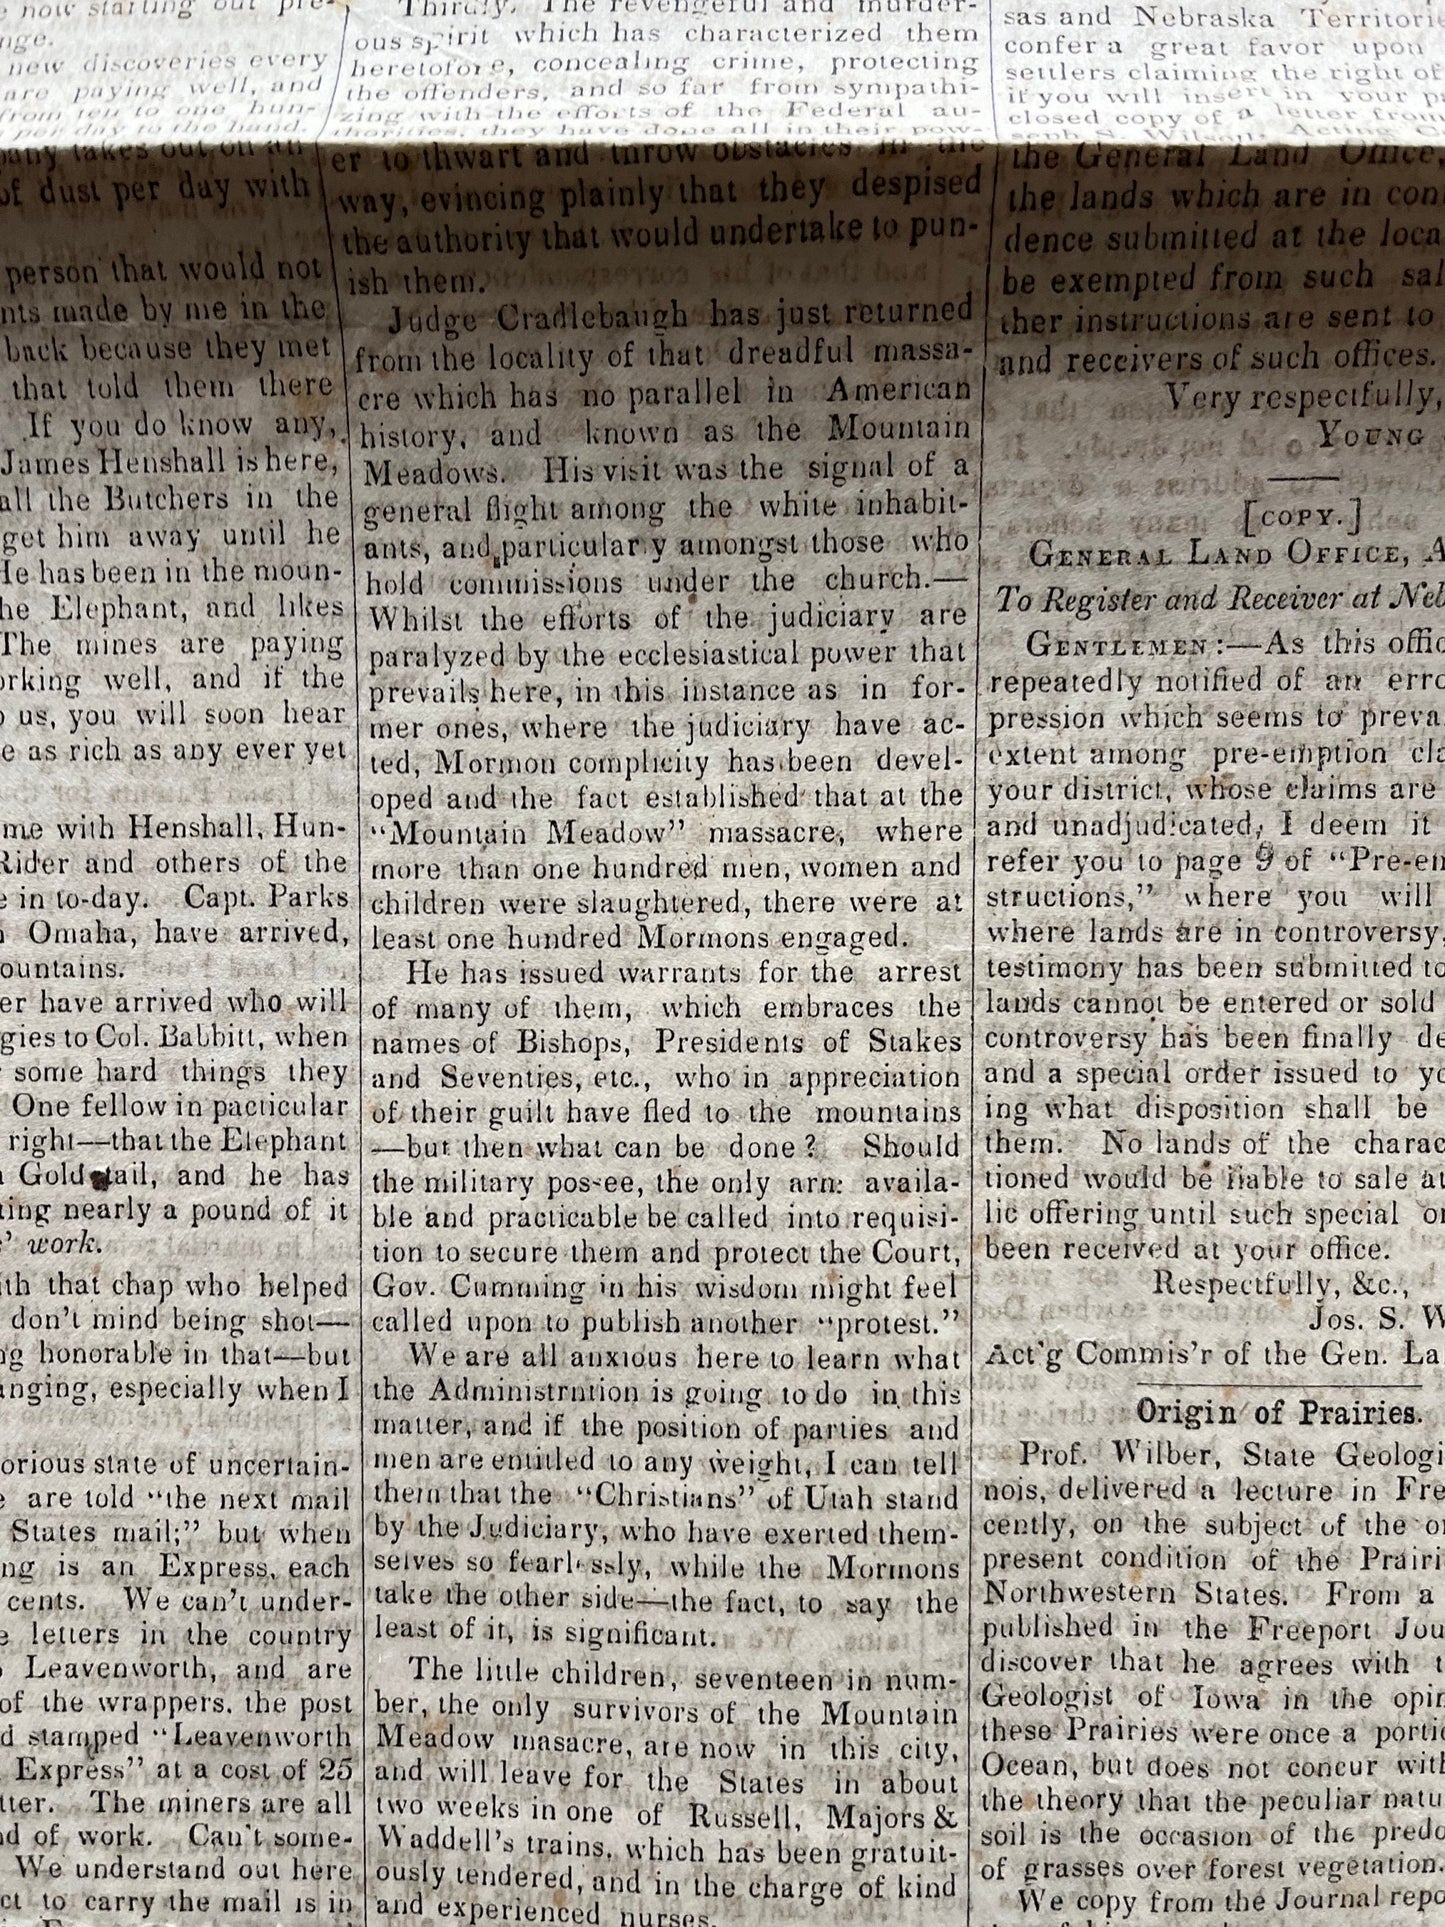 now starting out pre-
nge.
new discoveries every
are paying well, and
from ten to one hun-
per day to the hand.
pany takes out on an
of dust per day with
person that would not
nts made by me in the
back because they met
that told them there
If you do know any,
James Henshall is here,
all the Butchers in the
get him away until he
He has been in the moun-
he Elephant, and likes
The mines are paying
orking well, and if the
o us, you will soon hear
e as rich as any ever yet
me with Henshall, Hun-
Rider and others of the
e in to-day. Capt. Parks
Omaha, have arrived,
ountains.
er have arrived who will
gies to Col. Babbitt, when
some hard things they
One fellow in pacticular
right—that the Elephant
Gold tail, and he has
ing nearly a pound of it
' work.
ith that chap who helped
don't mind being shot—
ng honorable in that—but
anging, especially when I
orious state of uncertain-
e are told "the next mail
States mail;" but when
ng is an Express, each
cents. We can't under-
e letters in the country
o Leavenworth, and are
of the wrappers, the post
d stamped "Leavenworth
Express" at a cost of 25
tter. The miners are all
nd of work. Can't some-
We understand out here
ct to carry the mail is in
Thirdly. The revengeful and murder-
ous spirit which has characterized them
heretofore, concealing crime, protecting
the offenders, and so far from sympathi-
zing with the efforts of the Federal au-
thorities, they have done all in their pow-
er to thwart and throw obstacles in the
way, evincing plainly that they despised
the authority that would undertake to pun-
ish them.
Judge Cradlebaugh has just returned
from the locality of that dreadful massa-
cre which has no parallel in American
history, and known as the Mountain
Meadows. His visit was the signal of a
general flight among the white inhabit-
ants, and particular y amongst those who
hold commissions under the church.—
Whilst the efforts of the judiciary are
paralyzed by the ecclesiastical power that
prevails here, in this instance as in for-
mer ones, where the judiciary have ac-
ted, Mormon complicity has been devel-
oped and the fact established that at the
"Mountain Meadow" massacre, where
more than one hundred men, women and
children were slaughtered, there were at
least one hundred Mormons engaged.
He has issued warrants for the arrest
of many of them, which embraces the
names of Bishops, Presidents of Stakes
and Seventies, etc., who in appreciation
of their guilt have fled to the mountains
—but then what can be done? Should
the military possee, the only arm availa-
ble and practicable be called into requisi-
tion to secure them and protect the Court,
Gov. Cumming in his wisdom might feel
called upon to publish another "protest."
We are all anxious here to learn what
the Administrntion is going to do in this
matter, and if the position of parties and
men are entitled to any weight, I can tell
them that the "Christians" of Utah stand
by the Judiciary, who have exerted them-
selves so fearlessly, while the Mormons
take the other side—the fact, to say the
least of it, is significant.
The little children, seventeen in num-
ber, the only survivors of the Mountain
Meadow masacre, are now in this city,
and will leave for the States in about
two weeks in one of Russell, Majors &
Waddell's trains, which has been gratuit-
ously tendered, and in the charge of kind
and experienced nurses.
sas and Nebraska Territorie
confer a great favor upon
settlers claiming the right of
if you will insert in your p
closed copy of a letter from
seph S. Wilson, Acting C
the General Land Office,
the lands which are in con
dence submitted at the loca
be exempted from such sal
ther instructions are sent to
and receivers of such offices.
Very respectfully,
YOUNG
[COPY.]
GENERAL LAND OFFICE, A
To Register and Receiver at Neb
GENTLEMEN:—As this offic
repeatedly notified of an erro
pression which seems to preva
extent among pre-emption cla
your district, whose claims are
and unadjudicated, I deem it
refer you to page 9 of "Pre-em
structions," where you will
where lands are in controversy,
testimony has been submitted to
lands cannot be entered or sold
controversy has been finally de
and a special order issued to yo
ing what disposition shall be
them. No lands of the charac
tioned would be liable to sale at
lic offering until such special or
been received at your office.
Respectfully, &c.,
Jos. S. W
Act'g Commis'r of the Gen. La
Origin of Prairies.
Prof. Wilber, State Geologi
nois, delivered a lecture in Fre
cently, on the subject of the or
present condition of the Prairi
Northwestern States. From a
published in the Freeport Jou
discover that he agrees with t
Geologist of Iowa in the opin
these Prairies were once a portio
Ocean, but does not concur with
the theory that the peculiar natu
soil is the occasion of the predo
of grasses over forest vegetation.
We copy from the Journal repo